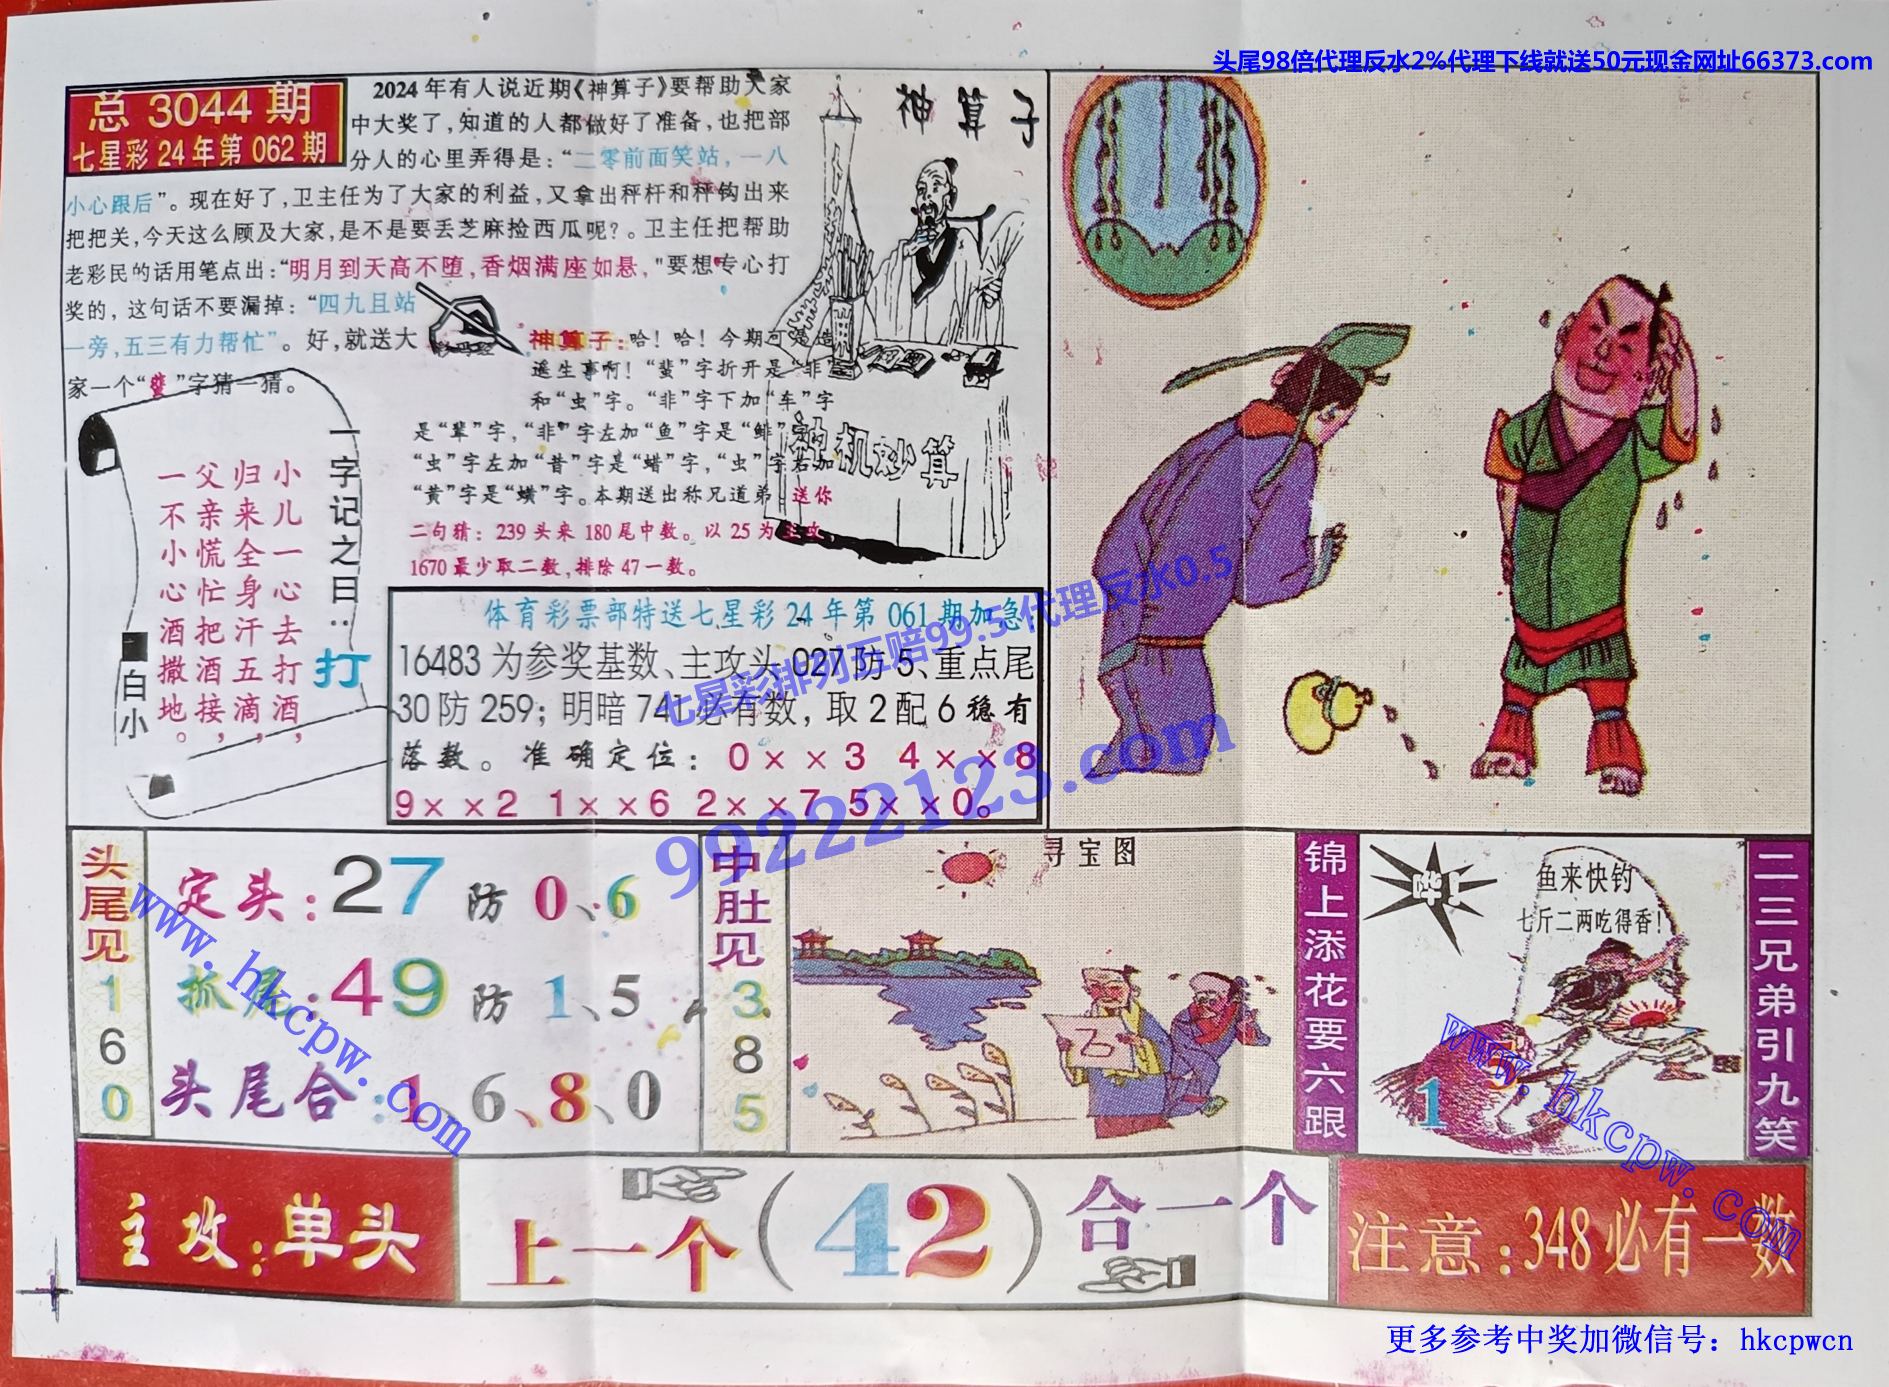 头尾98倍代理反水2%代理下线就送50元现金网址66373.com
总 3044 期
七星彩 24 年第 062 期
2024 年有人说近期《神算子》要帮助大家
中大奖了,知道的人都做好了准备,也把部
分人的心里弄得是:“二零前面笑站,一八
小心跟后”。现在好了,卫主任为了大家的利益,又拿出秤杆和秤钩出来
把把关,今天这么顾及大家,是不是要丢芝麻捡西瓜呢?。卫主任把帮助
老彩民的话用笔点出:“明月到天高不堕,香烟满座如悬,"要想专心打
奖的,这句话不要漏掉:“四九且站
一旁,五三有力帮忙”。好,就送大
家一个“蜚”字猜一猜。
神算子
神算子:哈!哈!今期可是造
遥生事啊!“蜚”字折开是“非”
和“虫”字。“非”字下加“车”字
是“辈”字,“非”字左加“鱼”字是“鲱”字,
“虫”字左加“昔”字是“蜡”字,“虫”字右加
“黄”字是“蟥”字。本期送出称兄道弟,送你
二句猜:239 头来 180 尾中数。以 25 为主攻,
1670 最少取二数,排除 47 一数。
神机妙算
一字记之曰:打
小儿一心去打酒,
归来全身汗五滴,
父亲慌忙把酒接,
一不小心酒撒地。
白小
体育彩票部特送七星彩 24 年第 061 期加急:
16483 为参奖基数、主攻头 027 防 5、重点尾
30 防 259; 明暗 741 必有数, 取 2 配 6 稳有
落数。准确定位: 0××3 4××8
9××2 1××6 2××7 5××0。
七星彩排列五赔99.5 代理反水0.5
99222123.com
头尾见160
定头:27 防 0、6
抓尾:49 防 1、5
头尾合:1、6、8、0
中肚见385
寻宝图
锦上添花要六跟
鱼来快钓
七斤二两吃得香!
1
二三兄弟引九笑
www.hkcpw.com
www.hkcpw.com
主攻:单头
上一个(42)合一个
注意:348 必有一数
更多参考中奖加微信号:hkcpwcn